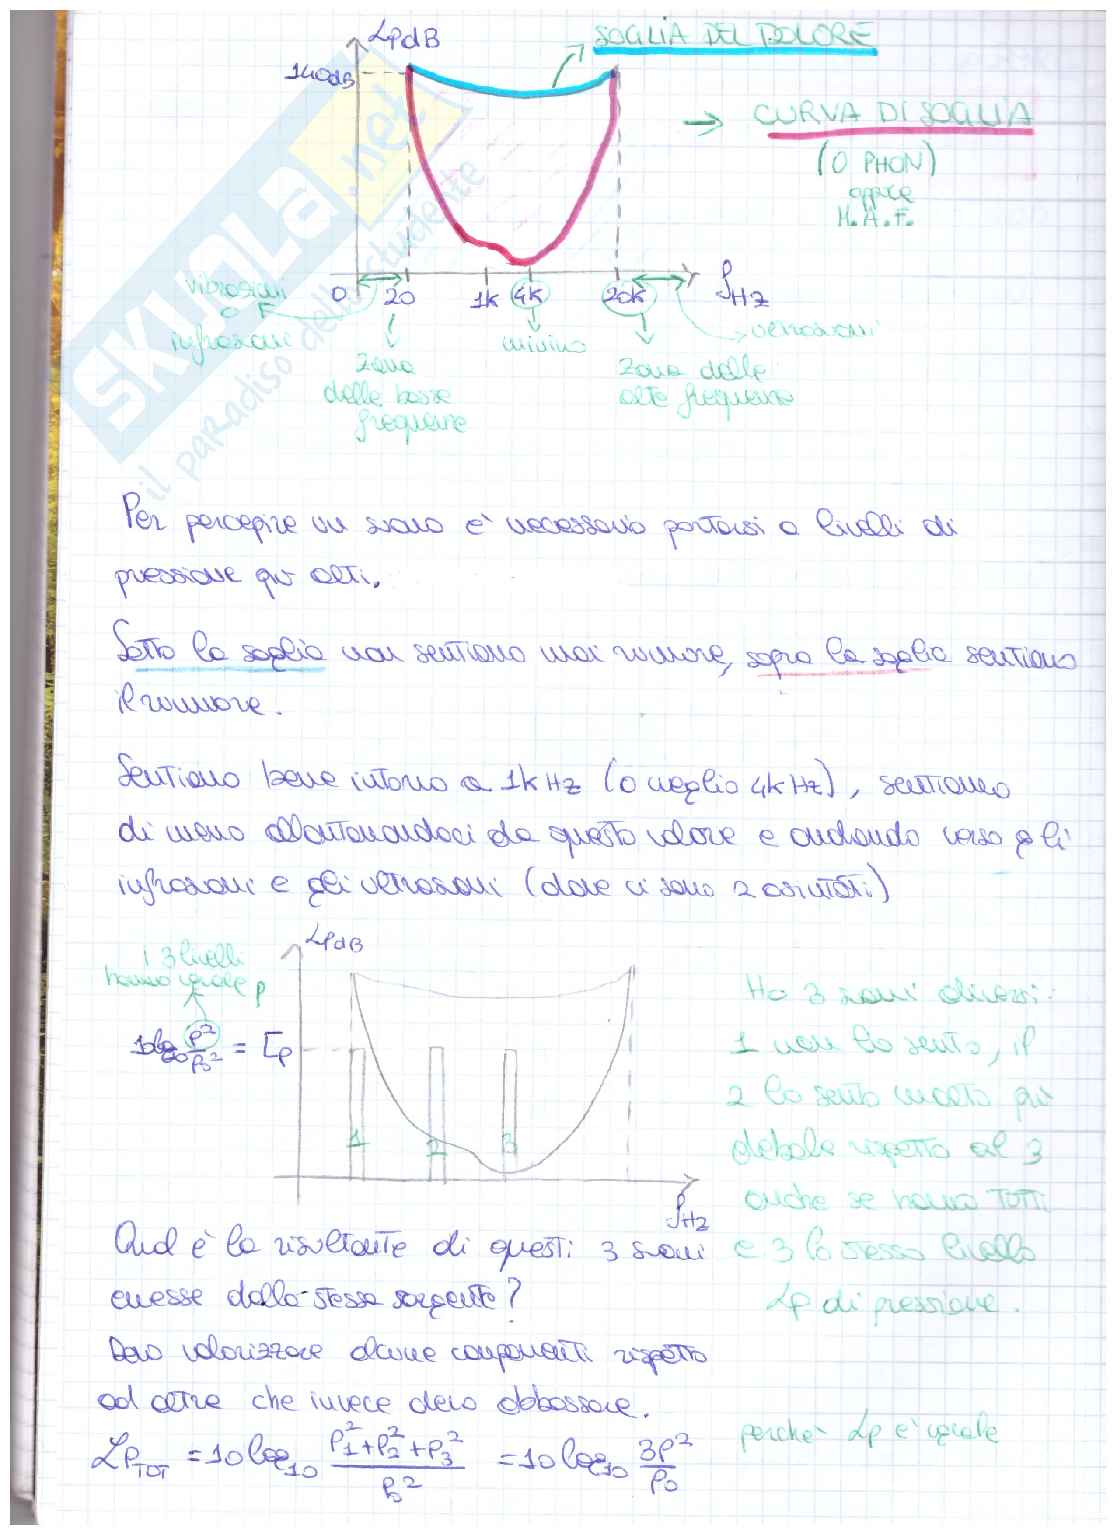 LpdB
SOGLIA DEL DOLORE
140dB
→ CURVA DI SOGLIA
(O PHON)
oppure
M.A.F.
SKUOLA.net
il paradiso dello studente
0 20 1k 4k 20k fHz
vibrazioni
o
infrasuoni
zona
delle basse
frequenze
minimo
zona delle
alte frequenze
ultrasuoni
Per percepire un suono è necessario portarsi a livelli di
pressione più alti.
Sotto la soglia non sentiamo mai rumore, sopra la soglia sentiamo
il rumore.
Sentiamo bene intorno a 1kHz (o meglio 4kHz), sentiamo
di meno allontanandoci da questo valore e andando verso gli
infrasuoni e gli ultrasuoni (dove ci sono 2 asintoti)
LpdB
i 3 livelli
hanno uguale p
10log10 p²/p0² = Lp
1 2 3
fHz
Ho 3 suoni diversi:
1 non lo sento, il
2 lo sento molto più
debole rispetto al 3
anche se hanno TUTTI
e 3 lo stesso livello
Lp di pressione.
Qual è la risultante di questi 3 suoni
emesse dalla stessa sorgente?
Devo valorizzare alcune componenti rispetto
ad altre che invece devo abbassare.
LpTOT = 10 log10 p1²+p2²+p3²/p0² = 10 log10 3p²/p0
perché Lp è uguale